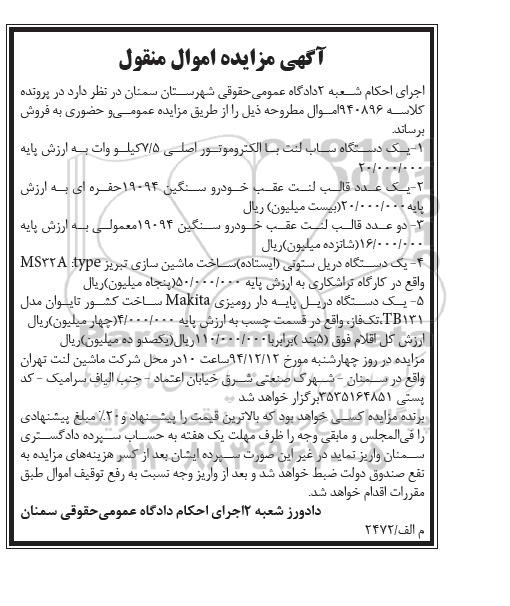 آگهی مزایده اموال منقول
اجرای احکام شعبه ۲دادگاه عمومی‌حقوقی شهرستان سمنان در نظر دارد در پرونده
کلاسه ۹۴۰۸۹۶اموال مطروحه ذیل را از طریق مزایده عمومی‌و حضوری به فروش
برساند.
۱-یک دستگاه ساب لنت با الکتروموتور اصلی ۷/۵کیلو وات به ارزش پایه
۲۰/۰۰۰/۰۰۰
۲-یک عدد قالب لنت عقب خودرو سنگین ۱۹۰۹۴حفره ای به ارزش
پایه۲۰/۰۰۰/۰۰۰(بیست میلیون) ریال
۳- دو عدد قالب لنت عقب خودرو سنگین ۱۹۰۹۴معمولی به ارزش پایه
۱۶/۰۰۰/۰۰۰(شانزده میلیون)ریال
۴- یک دستگاه دریل ستونی (ایستاده)ساخت ماشین سازی تبریز MS۳۲A :type
واقع در کارگاه تراشکاری به ارزش پایه ۵۰/۰۰۰/۰۰۰(پنجاه میلیون)ریال
۵- یک دستگاه دریل پایه دار رومیزی Makita ساخت کشور تایوان مدل
TB۱۳۱،تک‌فاز، واقع در قسمت چسب به ارزش پایه ۴/۰۰۰/۰۰۰(چهار میلیون)ریال
ارزش کل اقلام فوق (۵بند )برابربا۱۱۰/۰۰۰/۰۰۰ریال(یکصدو ده میلیون)ریال
مزایده در روز چهارشنبه مورخ ۹۴/۱۲/۱۲ساعت ۱۰در محل شرکت ماشین لنت تهران
واقع در سمنان - شهرک صنعتی شرق خیابان اعتماد - جنب الیاف سرامیک - کد
پستی ۳۵۳۵۱۶۴۸۵۱برگزار خواهد شد
برنده مزایده کسی خواهد بود که بالاترین قیمت را پیشنهاد و۲۰٪ مبلغ پیشنهادی
را فی‌المجلس و مابقی وجه را ظرف مهلت یک هفته به حساب سپرده دادگستری
سمنان واریز نماید در غیر این صورت سپرده ایشان بعد از کسر هزینه‌های مزایده به
نفع صندوق دولت ضبط خواهد شد و بعد از واریز وجه نسبت به رفع توقیف اموال طبق
مقررات اقدام خواهد شد.
دادورز شعبه ۲اجرای احکام دادگاه عمومی‌حقوقی سمنان
م الف/۲۴۷۲